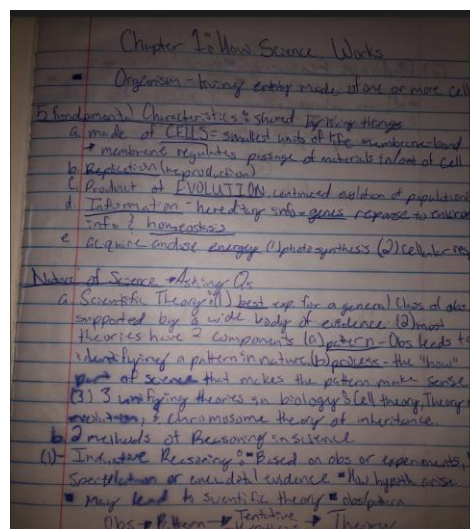 Chapter 1: How Science Works
Organism - living entity made of one or more cell
5 fundamental Characteristics: shared by living things
a. made of CELLS = smallest units of life membrane-bound
→ membrane regulates passage of materials in/out of cell
b. Replication (reproduction)
c. Product of EVOLUTION, continued evolution of populations
d. Information - hereditary info = genes response to environ
info & homeostasis
e. acquire and use energy (1) photosynthesis (2) cellular resp
Nature of Science → Asking Qs
a Scientific Theory: (1) best exp. for a general class of obs.
supported by a wide body of evidence (2) most
theories have 2 components (a) pattern - Obs leads to
identifying a pattern in nature (b) process - the "how"
part of science that makes the pattern make sense
(3) 3 unifying theories in biology: Cell theory, Theory
evolution, & chromosome theory of inheritance.
b. 2 methods of Reasoning in science
(1) - Inductive Reasoning: Based on obs or experiments,
Speculation or anecdotal evidence How hypoth arise
May lead to scientific theory obs/pattern
Obs → Pattern → Tentative → Theories